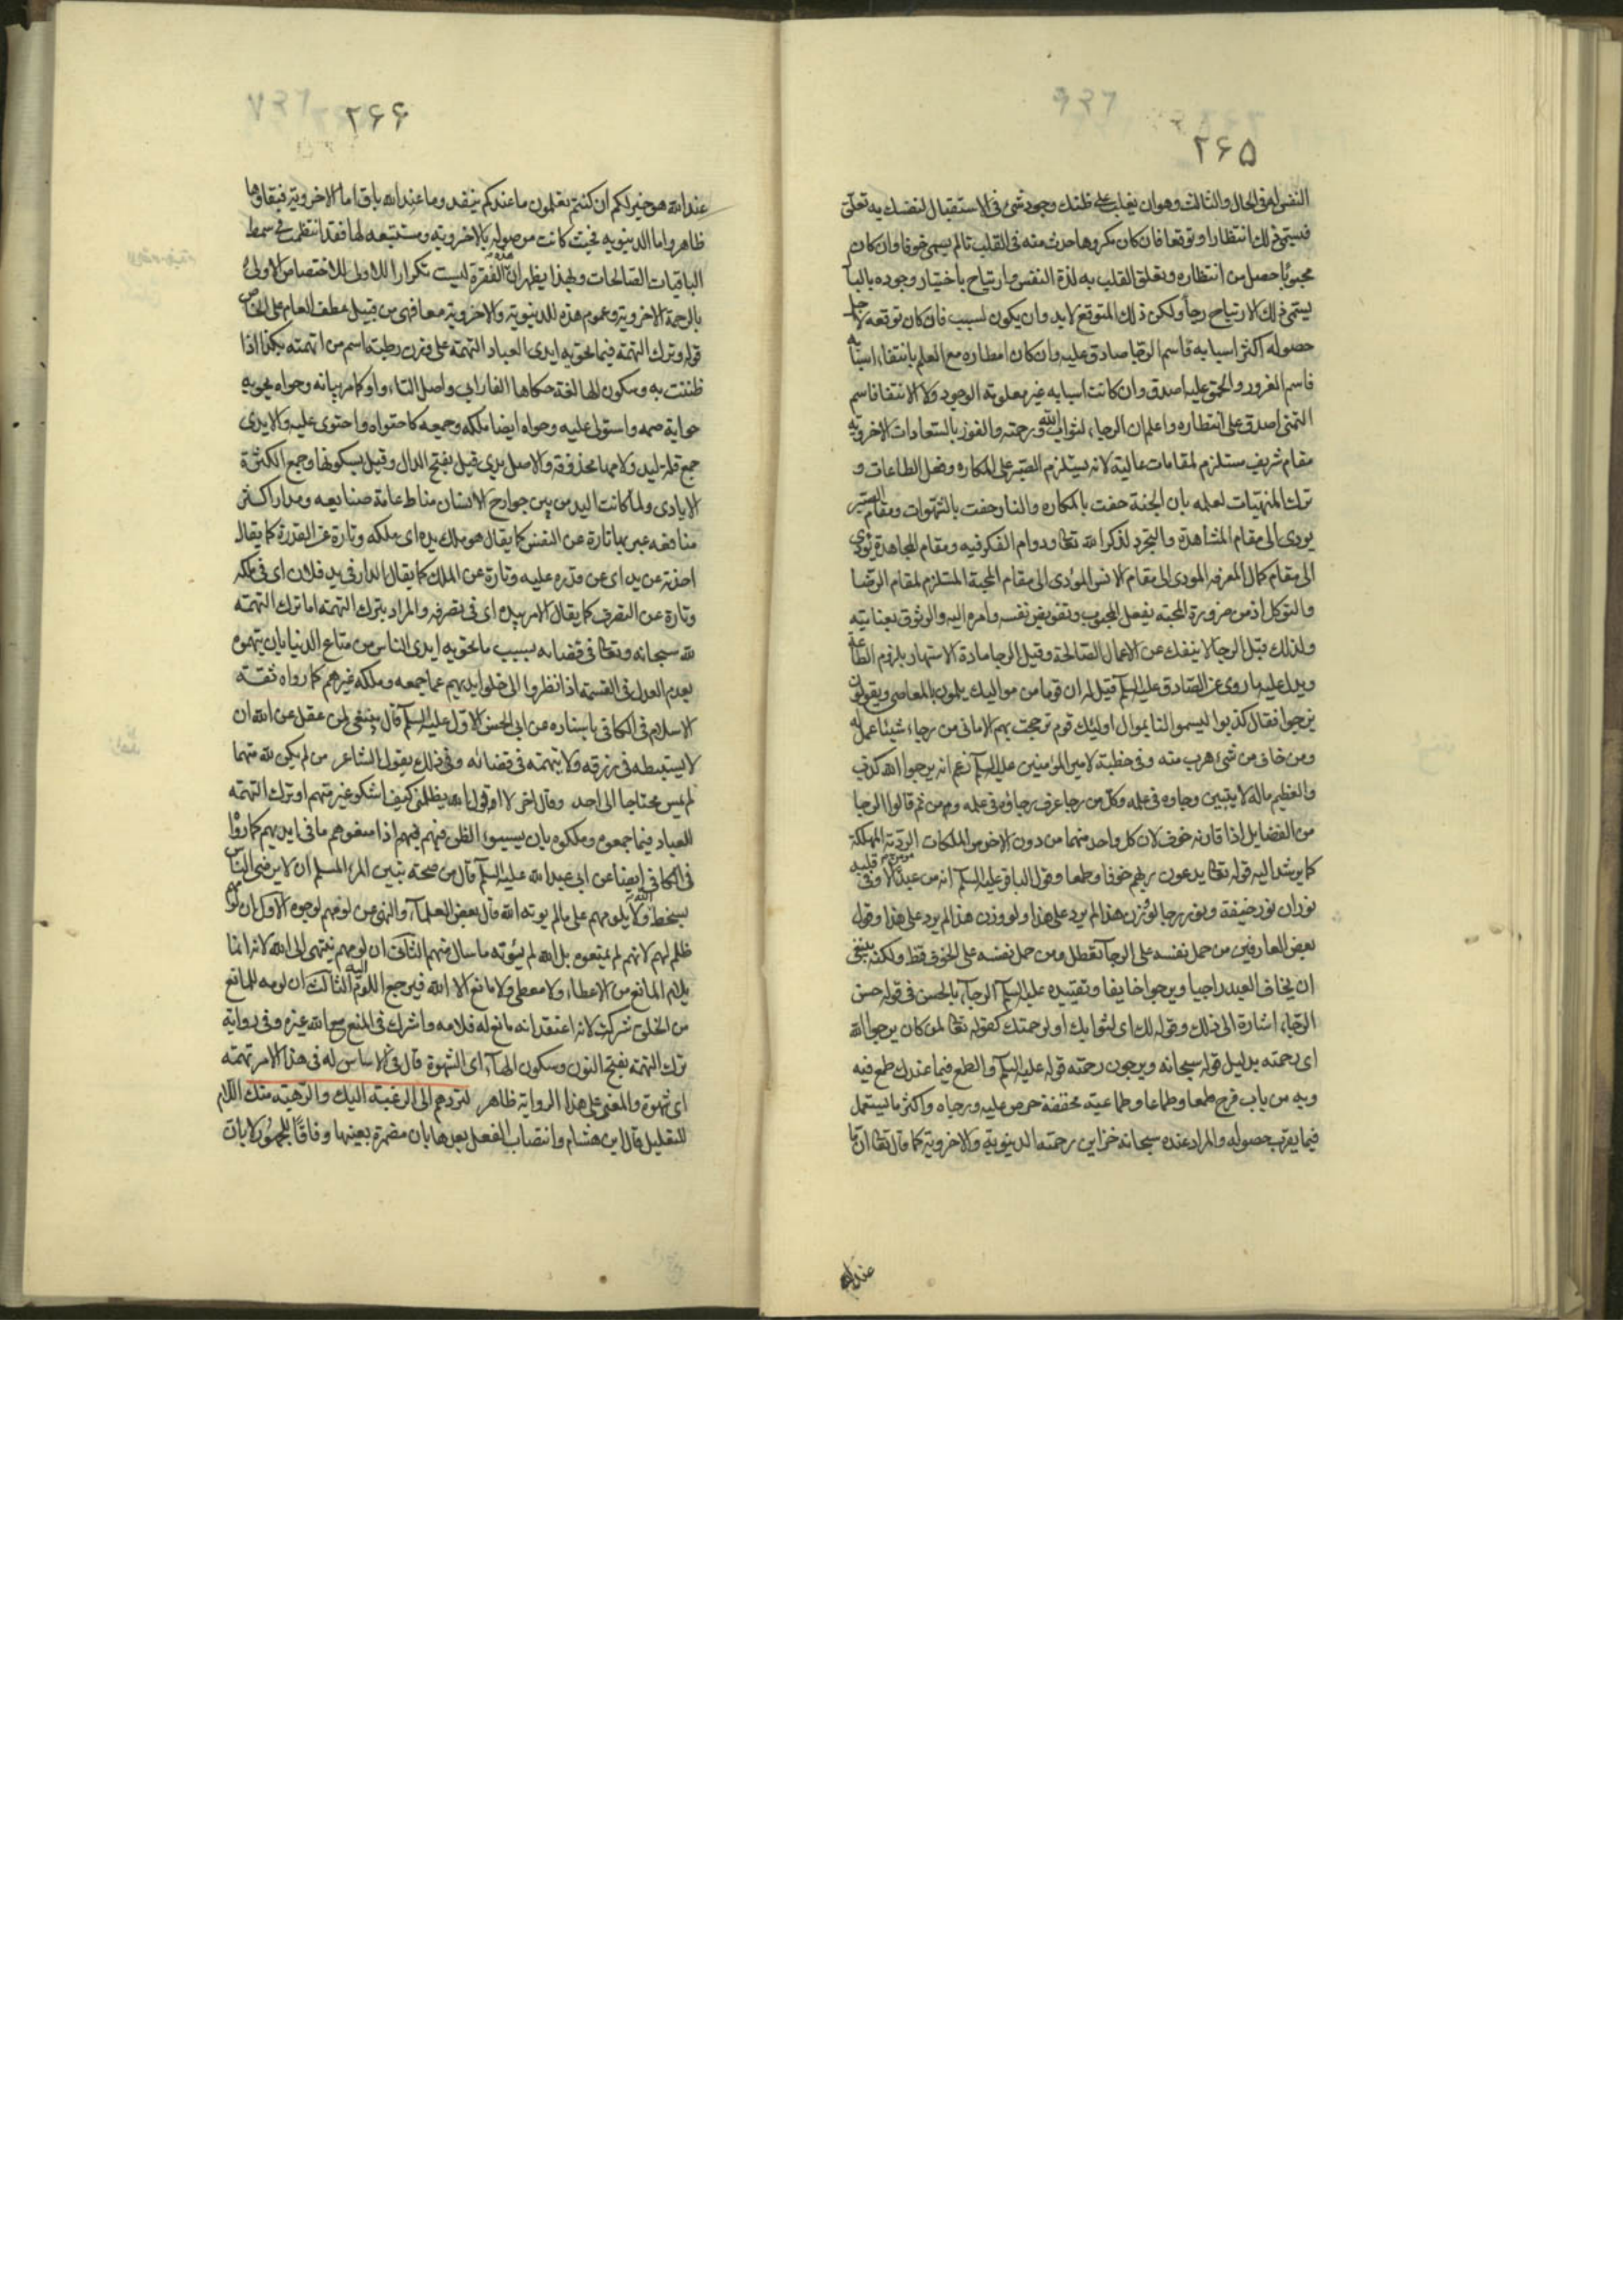 ۲۶۵
النفس له فى الحال والثالث وهوان يغلب على ظنك وجود شئ فى الاستقبال لنفسك به تعلق
فيسمى ذلك انتظارا وتوقعا فان كان مكروها حدث منه فى القلب تالم يسمى خوفا وان كان
محبوبا حصل من انتظاره وتعلق القلب به لذة النفس وارتياح باختيار وجوده بالبا
يسمى ذلك الارتياح رجاء ولكن ذلك المتوقع لابد وان يكون لسبب فان كان توقعه لاجل
حصوله اكثر اسبابه فاسم الرجا صادق عليه وان كان انتظاره مع العلم بانتفاء اسبابه
فاسم الغرور والحمق عليه اصدق وان كانت اسبابه غير معلومة الوجود ولا الانتفا فاسم
التمنى اصدق على انتظاره واعلم ان الرجاء لثواب الله ورحمته والفوز بالسعادات الاخروية
مقام شريف مستلزم لمقامات عالية لانه يستلزم الصبر على المكاره وفعل الطاعات و
ترك المنهيات لعلمه بان الجنة حفت بالمكاره والنار حفت بالشهوات ومقام الصبر
يودى الى مقام المشاهدة والتجرد لذكر الله تعالى ودوام الفكر فيه ومقام المجاهدة يودى
الى مقام كمال المعرفة المودى الى مقام الانس المؤدى الى مقام المحبة المستلزم لمقام الرضا
والتوكل اذ من ضرورة المحبة بفعل المحبوب وتفويض نفسه وامره اليه والوثوق بعنايته
ولذلك قيل الرجا لا ينفك عن الاعمال الصالحة وقيل الرجا مادة الاستهار بلزوم الطاعة
ويدل عليه ما روى عن الصادق عليه السلم قيل له ان قوما من مواليك يلمون بالمعاصى ويقولون
نرجوا فقال كذبوا ليسموا لنا بموال اولئك قوم ترجحت بهم الامانى من رجاء شيئا عمل له
ومن خاف من شئ هرب منه وفى خطبة لامير المؤمنين عليه السلم زعم انه يرجوا الله كذب
والعظيم ماله لا يتبين رجاوه فى عمله وكل من رجا عرف رجاؤه فى عمله ومن ثم قالوا الرجا
من الفضايل اذا قارنه خوف لان كل واحد منهما من دون الاخر من الملكات الردية المهلكة
كما يرشد اليه قوله تعالى يدعون ربهم خوفا وطمعا وقول الباقر عليه السلم انه من عبد مؤمن الا وفى قلبه
نوران نور خيفة ونور رجا لو وزن هذا لم يرد على هذا ولو وزن هذا لم يرد على هذا وقول
بعض العارفين من حمل نفسه على الرجا تعطل ومن حمل نفسه على الخوف قنط ولكنه ينبغى
ان يخاف العبد راجيا ويرجوا خايفا وتقييده عليه السلم الرجاء بالحسن فى قوله حسن
الرجاء اشارة الى ذلك وقوله لك اى لثوابك او لرحمتك كقوله تعالى لمن كان يرجوا الله
اى رحمته بدليل قوله سبحانه ويرجون رحمته قوله عليه السلم والطمع فيما عندك طمع فيه
وبه من باب فرح طمعا وطماعا وطماعية مخففة حرص عليه ورجاه واكثر ما يستعمل
فيما يقرب حصوله والمراد عنده سبحانه خزاين رحمته الدينوية والاخروية كما قال تعالى انما
عند الله
۲۶۶
عند الله هو خير لكم ان كنتم تعلمون ما عندكم ينفد وما عند الله باق اما الاخروية فبقاؤها
ظاهر واما الدينويه فحيث كانت موصولة بالاخروية ومستتبعه لها فقد انتظمت فى سمط
الباقيات الصالحات وبهذا يظهر ان هذه الفقرة ليست تكرارا للاولى للاختصاص الاولى
بالرحمة الاخروية وعموم هذه للدينوية والاخروية معا فهى من قبيل عطف العام على الخاص
قوله وترك التهمة فيما تحويه ايدى العباد التهمة على وزن رطبة اسم من اتهمته بكذا اذا
ظننت به وسكون الها لغة حكاها الفارابى واصل التاء واو كما مر بيانه وحواه يحويه
حواية ضمه واستولى عليه وحواه ايضا ملكه وجمعه كاحتواه واحتوى عليه والايدى
جمع قلة ليد ولامها محذوفة والاصل يدى قيل بفتح الدال وقيل بسكونها وجمع الكثرة
الايادى ولما كانت اليد من بين جوارح الانسان مناط عامة صنايعه ومدار اكثر
منافعه عبر بها تارة عن النفس كما يقال هو ملك يده اى ملكه وتارة عن القدرة كما يقال
اخذته عن يد اى عن قدره عليه وتارة عن الملك كما يقال الدار فى يد فلان اى فى ملكه
وتارة عن التصرف كما يقال الامر بيده اى فى تصرفه والمراد بترك التهمة اما ترك التهمة
لله سبحانه وتعالى فى قضائه بسبب ما تحويه ايدى الناس من متاع الدنيا بان يتهموه
بعدم العدل فى القسمة اذا نظروا الى خلو ايديهم عما جمعه وملكه غيرهم كما رواه ثقة
الاسلام فى الكافى باسناده عن ابى الحسن الاول عليه السلم قال ينبغى لمن عقل عن الله ان
لا يستبطه فى رزقه ولا يتهمه فى قضائه وفى ذلك يقول الشاعر من لم يكن لله متهما
لم يمس محتاجا الى احد وقال اخر لا اقول الله يظلمنى كيف اشكو غير متهم او ترك التهمة
للعباد فيما جمعوه وملكوه بان يسيىء الظن فيهم فيتهم اذا منعوهم ما فى ايديهم كما روى
فى الكافى ايضا عن ابى عبد الله عليه السلم قال من صحة يقين المرء المسلم ان لا يرضى الناس
بسخط الله ولا يلومهم على ما لم يوته الله قال بعض العلماء والنهى عن لومهم لوجوه الاول ان لومهم
ظلم لهم لانهم لم يمنعوه بل الله لم يؤته ما سال منهم الثانى ان لومهم ينتهى الى الله لانه انما
يلام المانع من الاعطاء ولا معطى ولا مانع الا الله فيرجع اللوم اليه الثالث ان لومه للمانع
من الخلق شرك لانه اعتقد انه مانع له فلامه واشرك فى المنع مع الله غيره وفى رواية
ترك النهمة بفتح النون وسكون الهاء اى الشهوة قال فى الاساس له فى هذا الامر نهمة
اى شهوة والمعنى على هذا الرواية ظاهر لتردهم الى الرغبة اليك والرهبة منك اللام
للتعليل قال ابن هشام وانتصاب الفعل بعدها بان مضمرة بعينها وفاقا للجمهور لا بان